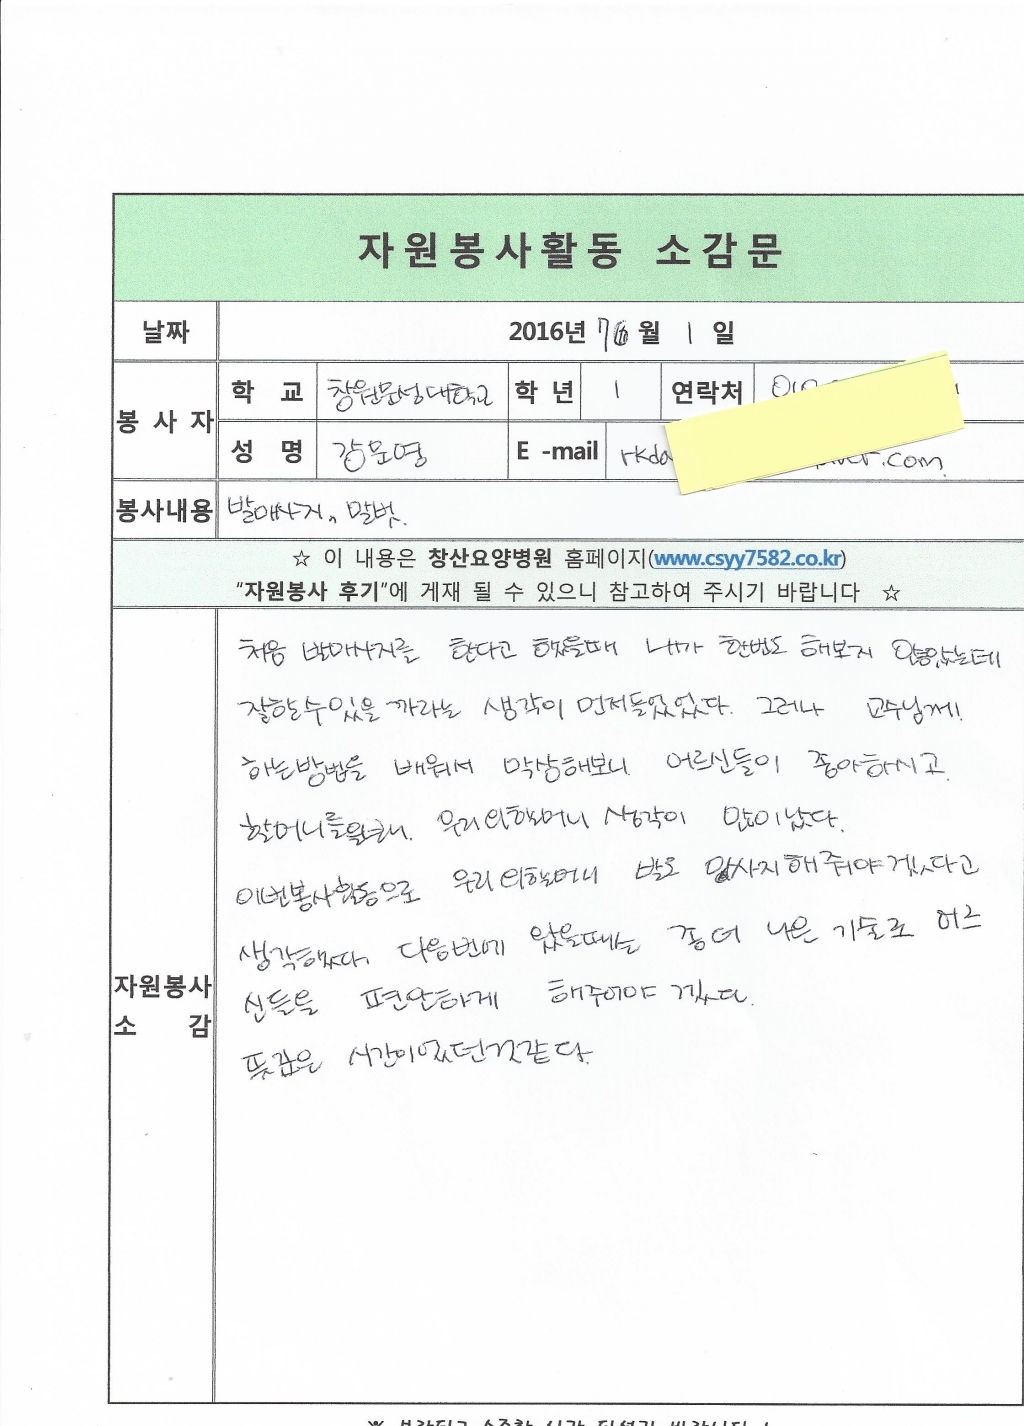 자원봉사활동 소감문
날짜 2016년 7월 1 일
봉 사 자 학 교 창원문성대학교 학 년 1 연락처 010
성 명 강문영 E -mail rkda .com
봉사내용 발마사지, 말벗.
☆ 이 내용은 창산요양병원 홈페이지(www.csyy7582.co.kr)
"자원봉사 후기"에 게재 될 수 있으니 참고하여 주시기 바랍니다 ☆
자원봉사
소 감
처음 발마사지를 한다고 했을때 내가 한번도 해보지 않았는데
잘할수있을 까라는 생각이 먼저들었었다. 그러나 교수님께
하는방법을 배워서 막상해보니 어르신들이 좋아하시고
할머니들을 우리외할머니 생각이 많이났다.
이번봉사활동으로 우리외할머니 발도 맛사지해줘야겠다고
생각했다. 다음번에 왔을때는 좀더 나은 기술로 어르
신들을 편안하게 해주어야 겠다.
뜻깊은 시간이었던것같다.